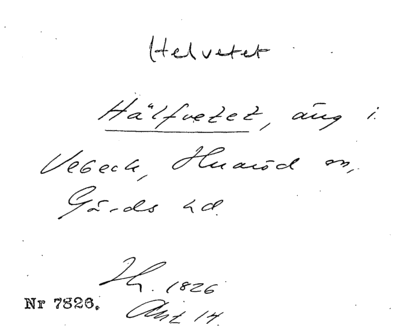 Helvetet
Hälfvetet, äng i
Vebeck, Huaröd sn,
Gärds hd.
1826
Akt 14.
Nr 7826.